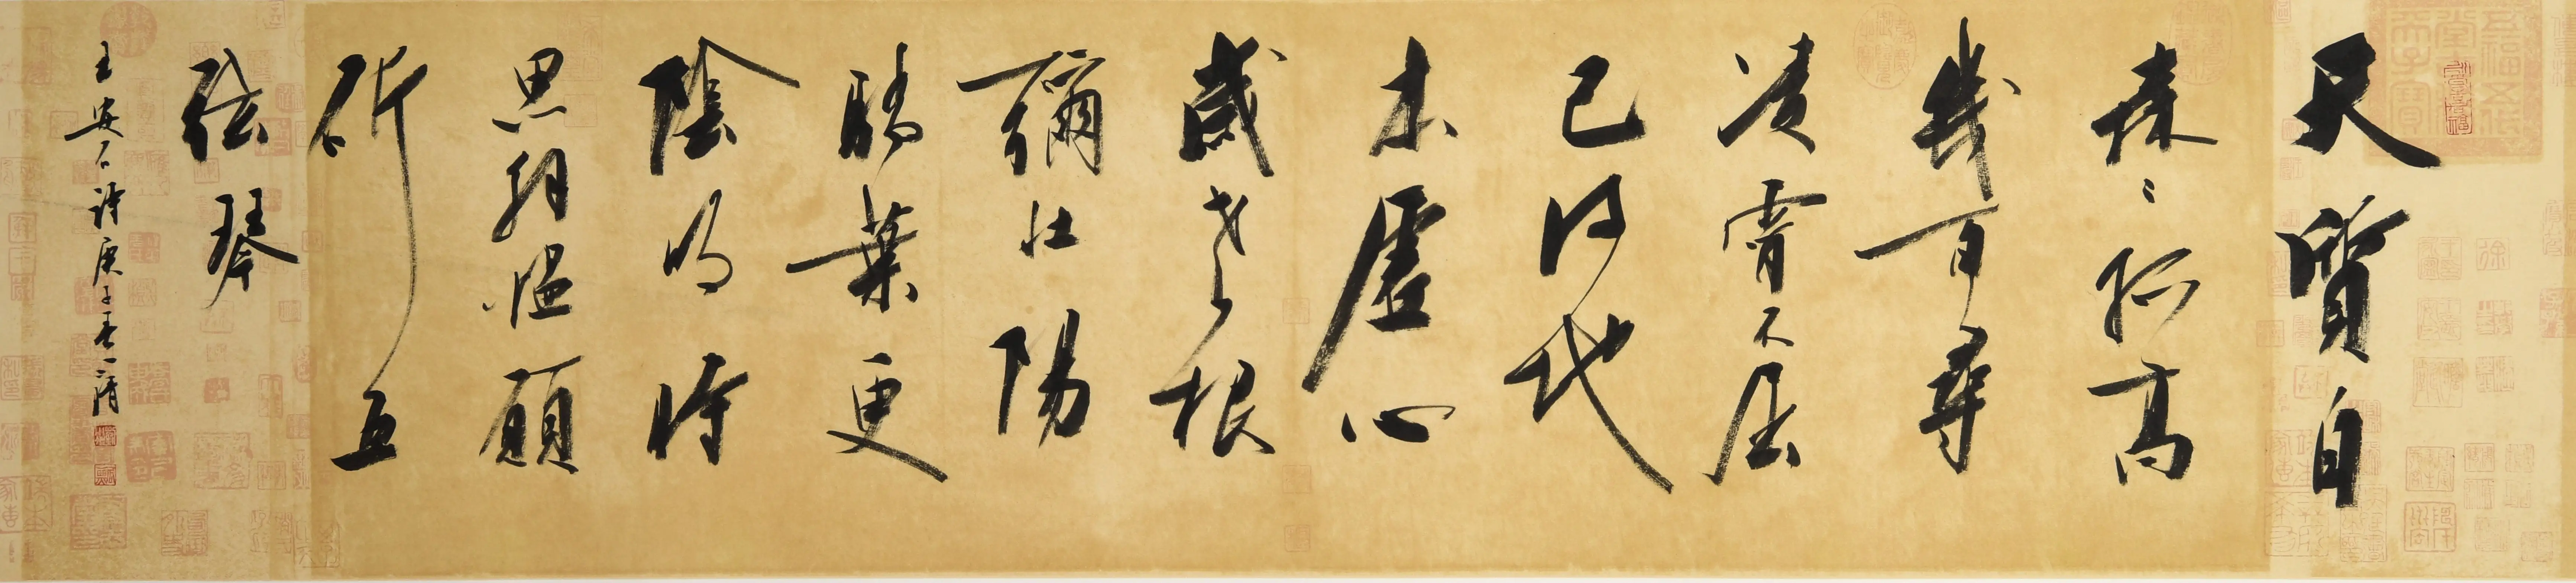 天質自
森〻孤高
幾百尋
凌霄不屈
己得地
本虛心
歲老根
彌壯陽
驕葉更
陰明時
思解慍願
斫五
弦琴
王安石詩庚子春一清